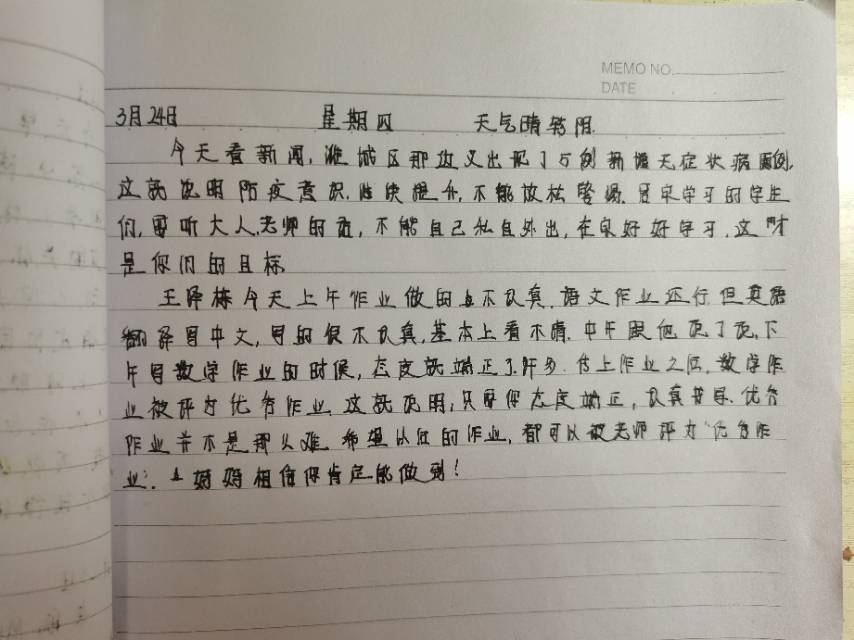 MEMO NO.
DATE
3月24日 星期四 天气晴转阴.
今天看新闻,潍城区那边又出现了5例新增无症状病例,
这就说明防疫意识,继续提升,不能放松警惕.居家学习的学生
们,要听大人、老师的话,不能自己私自外出,在家好好学习,这才
是你们的目标.
王译栋今天上午作业做的不认真,语文作业还行,但英语
翻译写中文,写的很不认真,基本上看不清.中午跟他说了说,下
午写数学作业的时候,态度就端正了许多.传上作业之后,数学作
业被评为优秀作业.这就说明,只要你态度端正,认真书写,优秀
作业并不是那么难.希望以后的作业,都可以被老师评为“优秀作
业”.妈妈相信你肯定能做到!